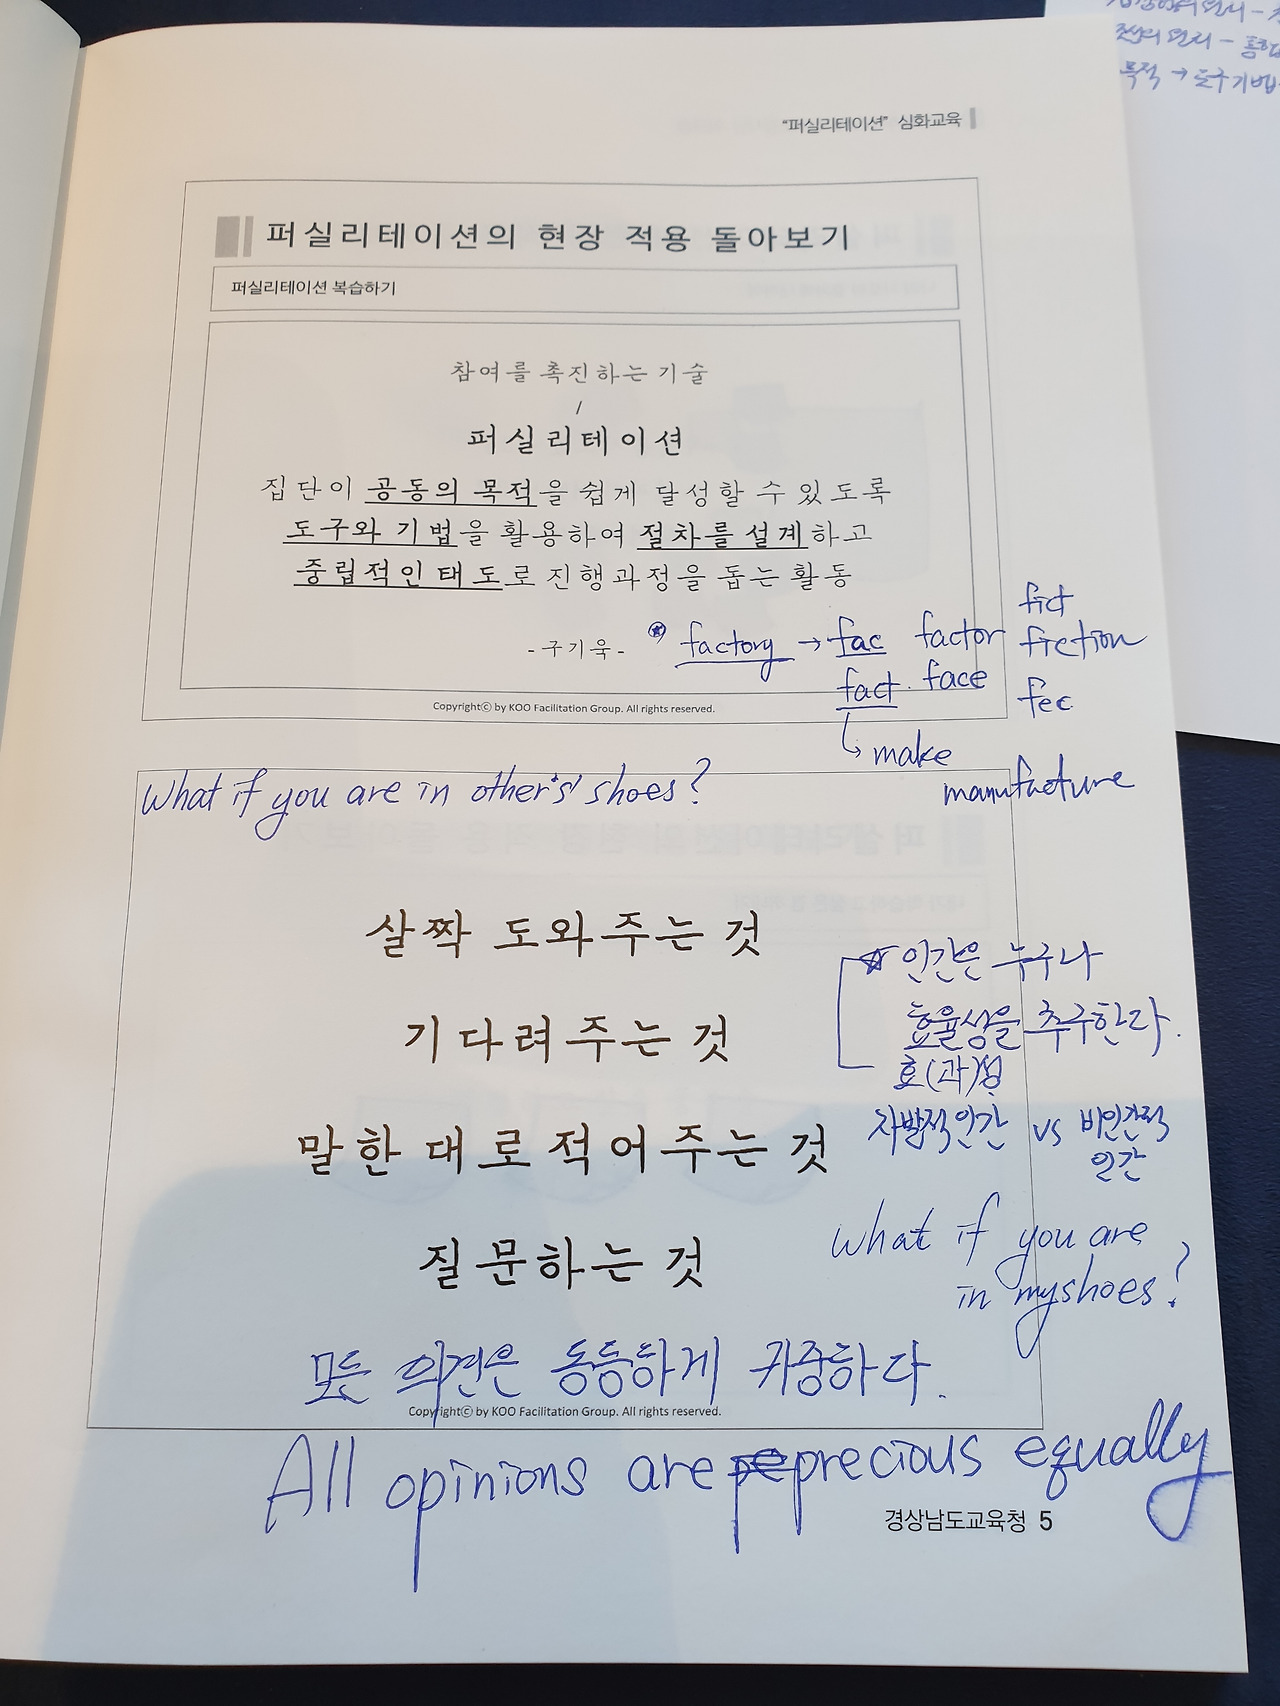 "퍼실리테이션" 심화교육
퍼실리테이션의 현장 적용 돌아보기
퍼실리테이션 복습하기
참여를 촉진하는 기술
/
퍼실리테이션
집단이 공동의 목적을 쉽게 달성할 수 있도록
도구와 기법을 활용하여 절차를 설계하고
중립적인 태도로 진행과정을 돕는 활동
-구기욱-
factory → fac factor fict
fact. face fiction
fec
make
manufacture
Copyrightⓒ by KOO Facilitation Group. All rights reserved.
What if you are in other's' shoes?
살짝 도와주는 것
기다려주는 것
말한대로 적어주는 것
질문하는 것
☆ 인간은 누구나
효율성을 추구한다.
효(과)성
자발적 인간 vs 비인간적
인간
What if you are
in my shoes?
모든 의견은 동등하게 귀중하다.
Copyrightⓒ by KOO Facilitation Group. All rights reserved.
All opinions are precious equally
경상남도교육청 5
목적 → 도구기법